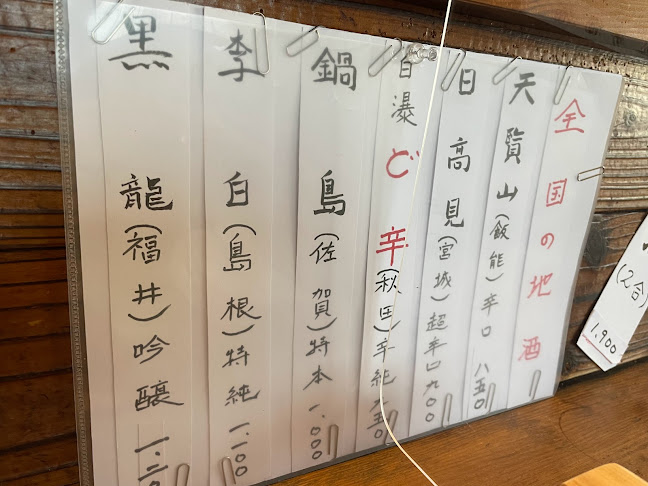 全国の地酒
天覧山(飯能)辛口 八五〇
日高見(宮城)超辛口 九〇〇
白瀑ど辛(秋田)辛純 九五〇
鍋島(佐賀)特本 一、〇〇〇
李白(島根)特純 一、一〇〇
黒龍(福井)吟醸 一、二〇
(2合)
1,900